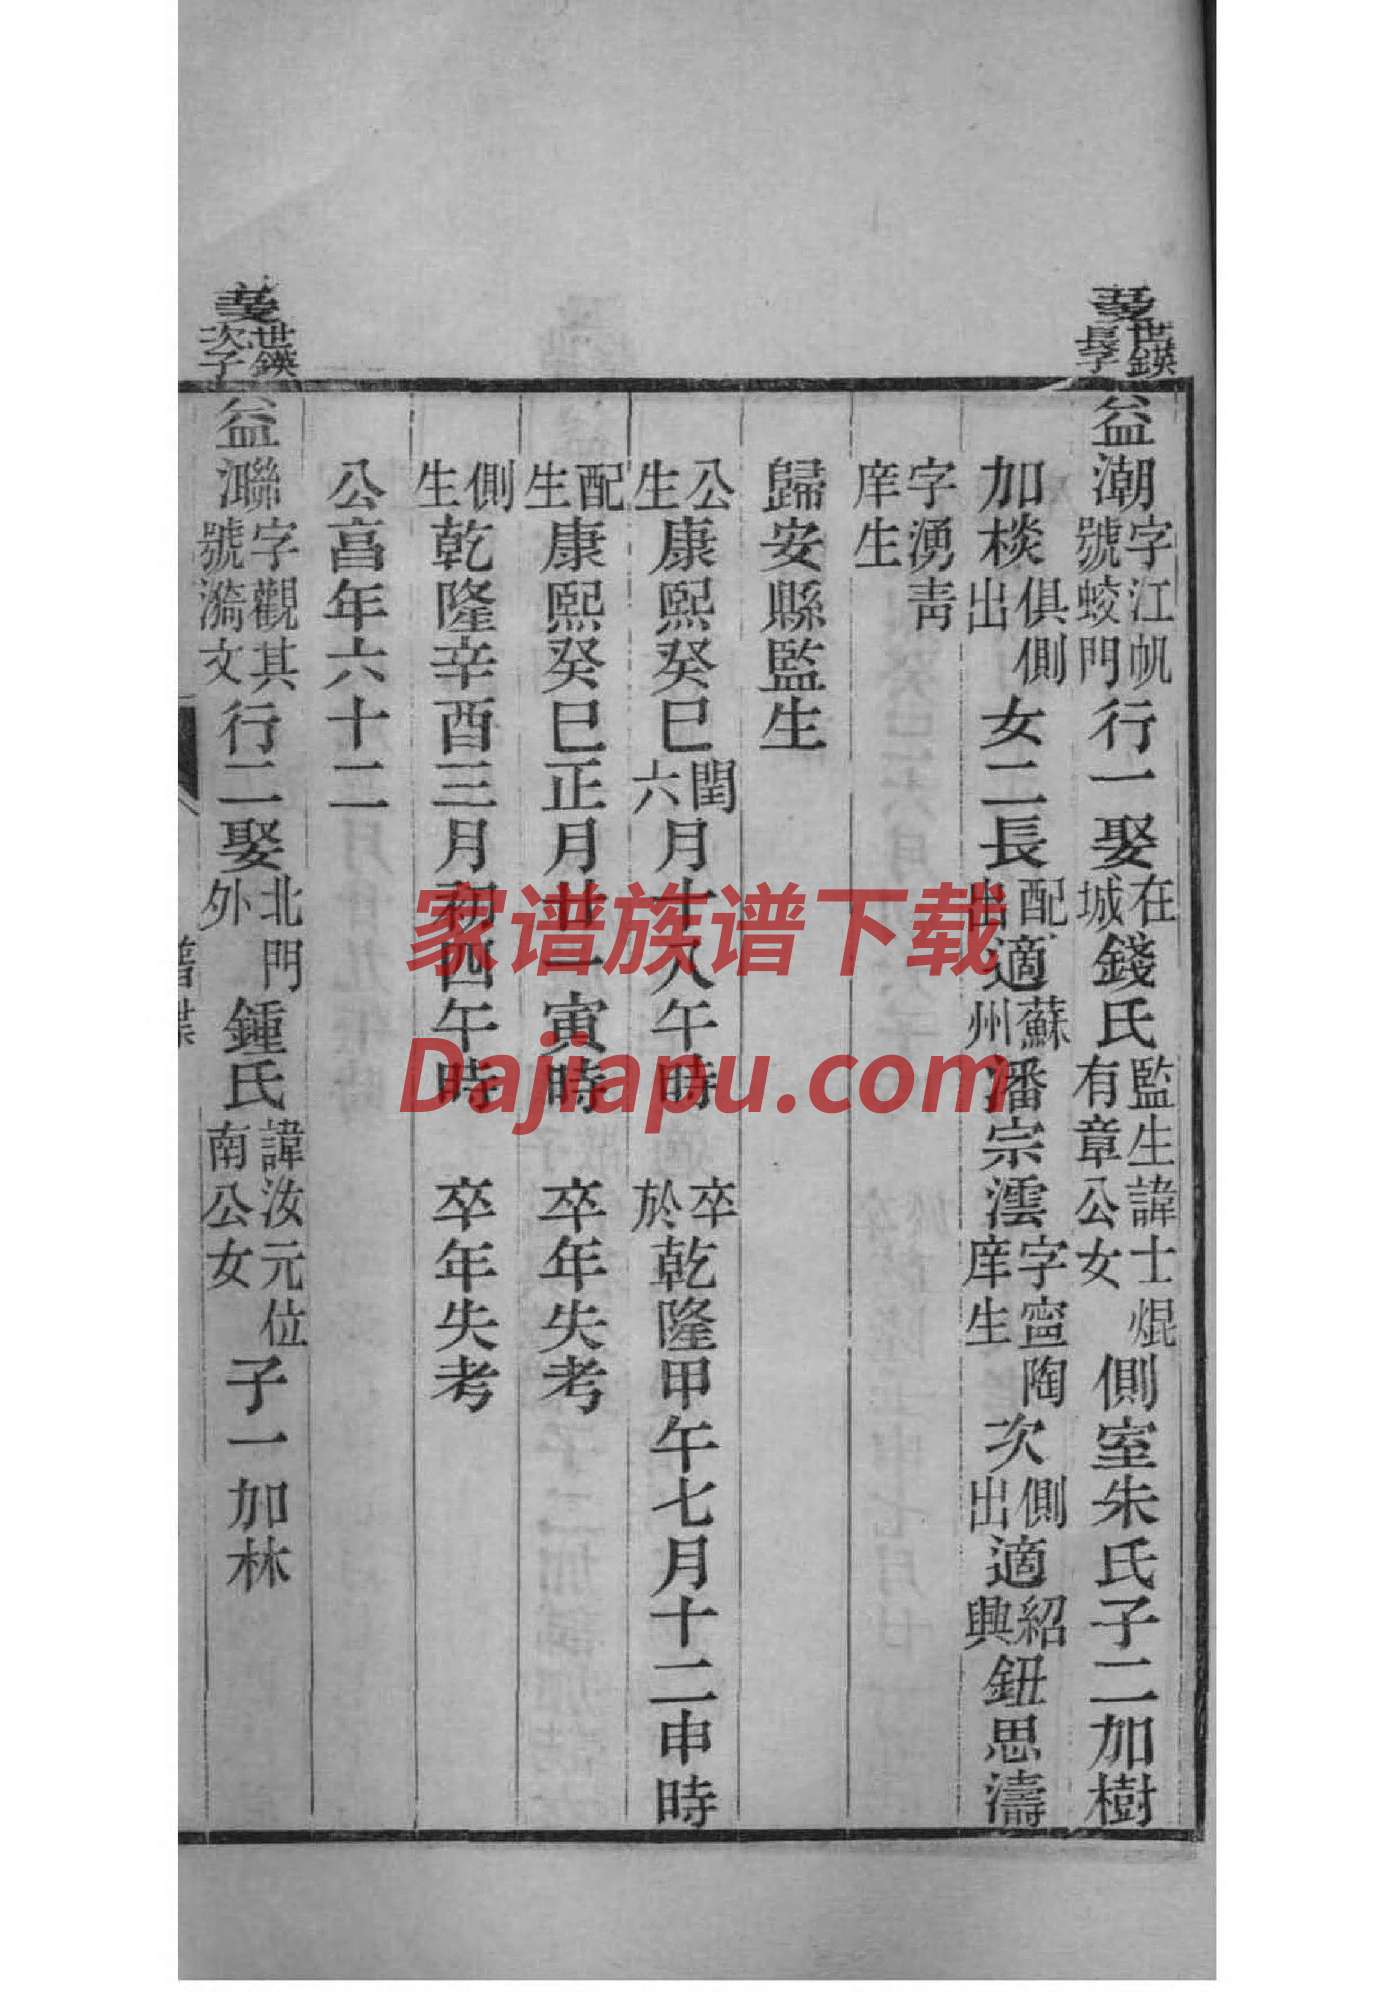 世鍈長子
益潮字江帆號蛟門行一娶在城錢氏監生諱士焜有章公女側室朱氏子二加樹
加棪俱側出女二長配出適蘇州潘宗澐字寍陶庠生次側出適紹興鈕思濤
字湧靑庠生
歸安縣監生
公生康熙癸巳閏六月十八午時 卒於乾隆甲午七月十二申時
配生康熙癸巳正月廿一寅時 卒年失考
側生乾隆辛酉三月初四午時 卒年失考
公亯年六十二
世鍈次子
益灦字觀其號漪文行二娶北門外鍾氏諱汝元位南公女子一加林
譜牒
家谱族谱下载
Dajiapu.com